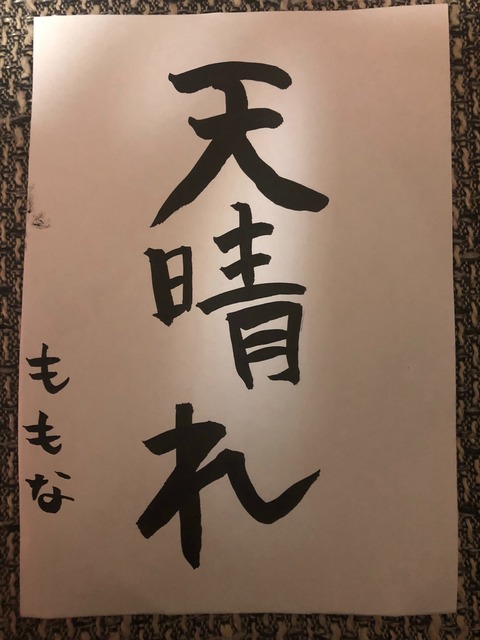 天晴れ
ももな